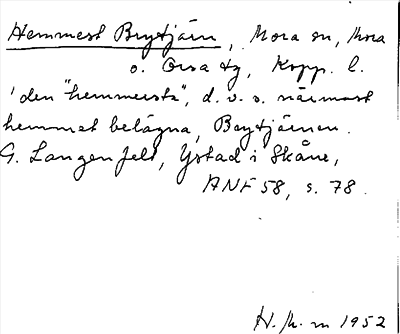 Hemmest Brytjärn, Mora sn, Mora
o. Orsa tg, Kopp. l.
'den "hemmersta", d.v.s. närmast
hemmet belägna, Brytjärnen.
G. Langenfelt, Ystad i Skåne,
ANF 58, s. 78.
H. m 1952